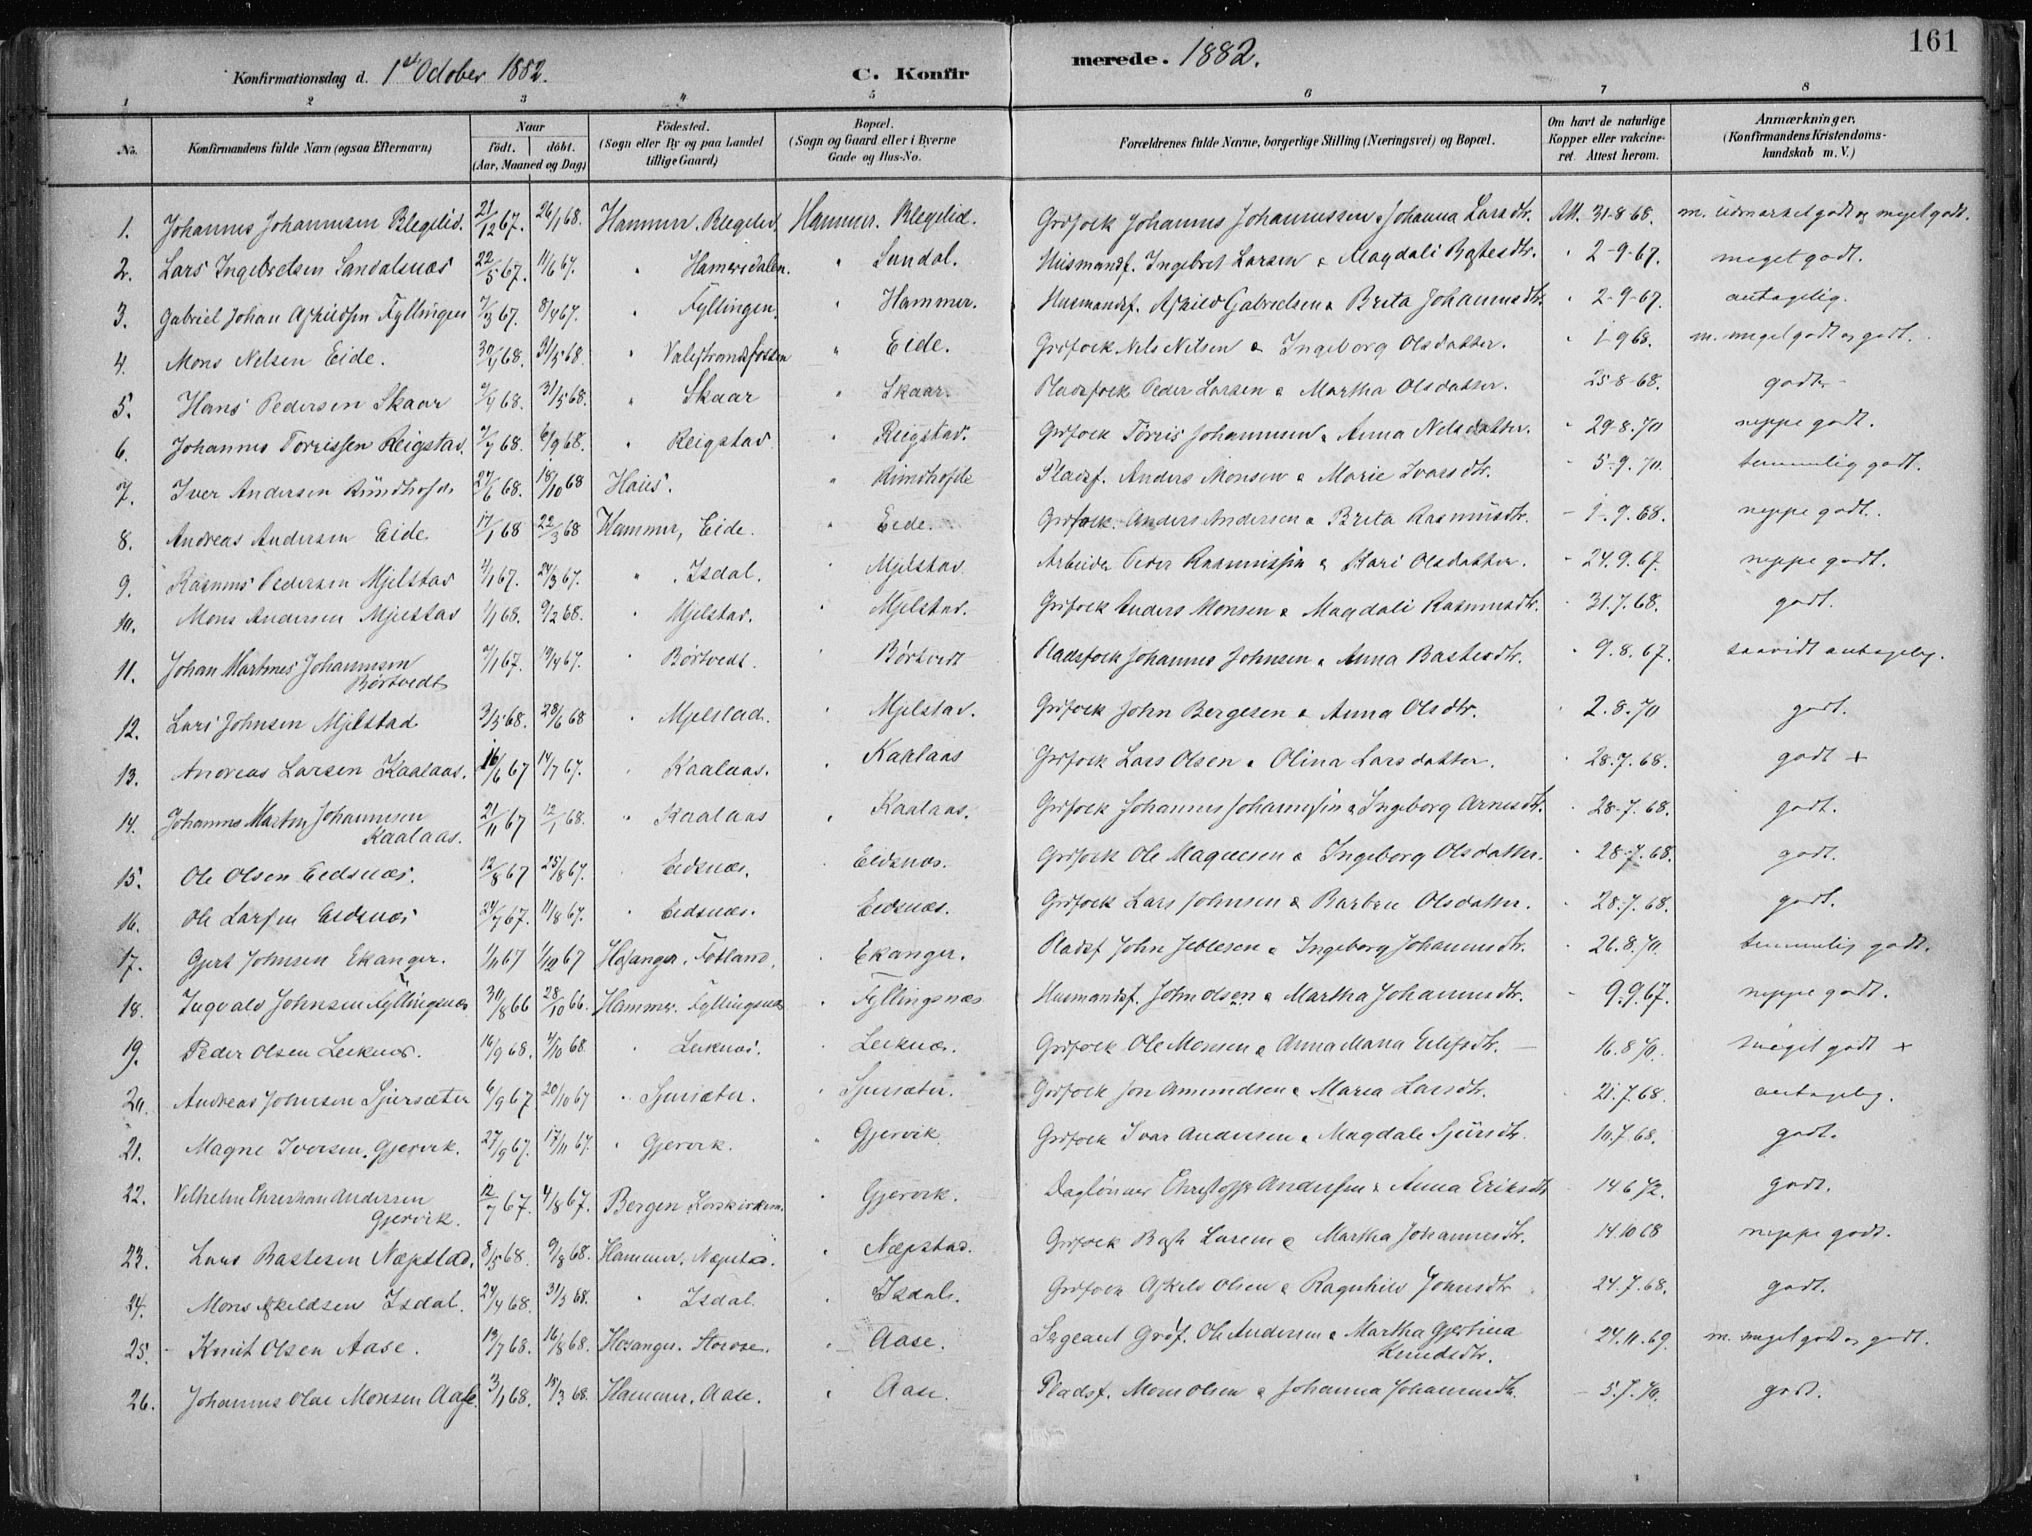 161
Konfirmationsdag d. 1ste October 1882. C. Konfirmerede. 1882.
1 2 3 4 5 6 7 8
No. Konfirmandens fulde Navn (ogsaa Efternavn) Naar født. døbt. (Aar, Maaned og Dag) Fødested. (Sogn eller By og paa Landet tillige Gaard) Bopæl. (Sogn og Gaard eller i Byerne Gade og Hus-No. Forældrenes fulde Navne, borgerlige Stilling (Næringsvei) og Bopæl. Om havt de naturlige Kopper eller vakcineret. Attest herom. Anmærkninger. (Konfirmandens Kristendomskundskab m. V.)
1. Johannes Johannesen Blegelid. 21/12 67. 26/1 68. Hammer. Blegelid. Hammer. Blegelid. Grdfolk Johannes Johannessen & Johanna Larsdtr. Att. 31-8-68. m. udmærket godt og meget godt.
2. Lars Ingebretsen Sandalsnæs 22/5 67. 11/6 67. " Hamersdalen. " Sandal. Husmandsf. Ingebret Larsen & Magdali Bastesdtr. " 2-9-67. meget godt.
3. Gabriel Johan Askildsen Fyllingen 7/3 67. 8/4 67. " Fyllingen. " Hammer. Husmandsf. Askild Gabrielsen & Brita Johannesdtr. " 2-9-67. antagelig.
4. Mons Nelsen Eide. 30/4 68. 31/5 68. " Valestrandsfossen " Eide. Grdfolk Nils Nilsen & Ingeborg Olsdatter. " 1-9 68. m. meget godt og godt.
5. Hans Pedersen Skaar 7/4 68. 31/5 68. " Skaar " Skaar. Pladsfolk Peder Larsen & Martha Olsdatter. " 25-8-68. godt
6. Johannes Torressen Reigstad. 7/7 68. 6/9 68. " Reigstad " Reigstad. Grdfolk Torris Johannesen & Anna Nelsdatter. " 29-8.70 neppe godt.
7. Iver Andersen Rundhofde 27/6 68. 18/10 68 Haus. " Rundhofde Pladsf. Anders Monsen & Marie Ivarsdtr. " 5-9.70. temmelig godt.
8. Andreas Andersen Eide 17/1 68 22/3 68 Hammer, Eide. " Eide. Grdfolk. Anders Andersen & Brita Rasmusdtr. - 1-9.68. neppe godt.
9. Rasmus Pedersen Mjelstad 2/1 67. 24/3 67. " Isdal. " Mjelstad Arbeider Peder Rasmussen & Kari Olsdatter. - 24.9.67. neppe godt.
10. Mons Andersen Mjelstad 1/1 68. 9/2 68. " Mjelstad. " Mjelstad. Grdfolk Anders Monsen & Magdali Rasmusdtr. " 31.7.68. godt.
11. Johan Martines Johannesen Børtvedt 2/1 67. 19/4 67. " Børtvedt. " Børtvedt Pladsfolk Johannes Johnsen & Anna Bastesdtr. " 9.8.67. saavidt antagelig.
12. Lars Johnsen Mjelstad 3/5 68. 28/6 68 " Mjelstad. " Mjelstad. Grdfolk John Bergesen & Anna Olsdtr. " 2.8.70 godt.
13. Andreas Larsen Kaalaas. 16/6 67 14/7 67. " Kaalaas. " Kaalaas Grdfolk Lars Olsen & Olina Larsdatter. " 28.7.68. godt +
14. Johannes Martin Johannesen Kaalaas. 21/11 67 12/1 68. " Kaalaas " Kaalaas. Grdfolk Johannes Johannessen & Ingeborg Arnesdtr. " 28-7.68. godt.
15. Ole Olsen Eidsnæs. 12/8 67 25/8 67. " Eidsnæs. " Eidsnæs. Grdfolk Ole Magnesen & Ingeborg Olsdatter. " 28-7.68. godt.
16. Ole Larsen Eidsnæs 24/7 67. 11/8 67. " Eidsnæs. " Eidsnæs. Grdfolk Lars Johnsen & Barbru Olsdatter. " 28-7.68. godt.
17. Gjert Johnsen Ekanger. 1/11 67 1/12 67 Hosanger. Fotland. " Ekanger. Pladsf John Jeblesen & Ingeborg Johannesdtr. " 26.8.70. temmelig godt.
18. Ingvald Johnsen Fyllingsnæs 30/8 66 28/10 66. Hammer. Fyllingsnæs " Fyllingsnæs Husmandsf. John olsen & Martha Johannesdtr. - 9.9.67. neppe godt.
19. Peder Olsen Leiknæs. 16/9 68. 4/10 68. " Leiknæs. " Leiknæs. Grdfolk Ole Monsen & Anna Maria Eilefsdtr. — 16.8 70. meget godt +
20. Andreas Johnsen Sjursæter 6/9 67 20/10 67 " Sjursæter. " Sjursæter. Grdfolk Jon Amundsen & Maria Larsdtr. " 21.7.68. antagelig.
21. Magne Iversen Gjervik. 27/9 67. 17/11 67. " Gjervik. " Gjervik Grdfolk Ivar Andersen & Magdale Sjursdtr. 10.7.68. godt.
22. Vilhelm Christian Andersen Gjervik. 12/7 67. 4/8 67. Bergen Korskirken. " Gjervik. Dagløner Christoffer Andersen & Anna Eriksdtr - 14 6 72. godt.
23. Lars Bastesen Næpstad. 8/5 68. 9/8 68. Hammer, Næpstad. " Næpstad. Grdfolk Bast Larsen & Martha Johannesdtr. 14.10 68 neppe godt.
24. Mons Askeldsen Isdal. 24/4 68. 31/5 68. " Isdal " Isdal. Grdfolk Askeld Olsen & Ragnhild Johnsdtr " 24.7.68. godt.
25. Knut Olsen Aase. 13/7 68. 16/8 68. Hosanger. Storose. " Aase. Sergeant Grdf. Ole Andersen & Martha Gjertina Knudsdtr. " 24.11.69. m. meget godt og godt.
26. Johannes Olai Monsen Aase 3/1 68. 15/3 68. Hammer, Aase. " Aase. Pladsf. Mons Olsen & Johanna Johannesdtr. - 5.7.70. godt.